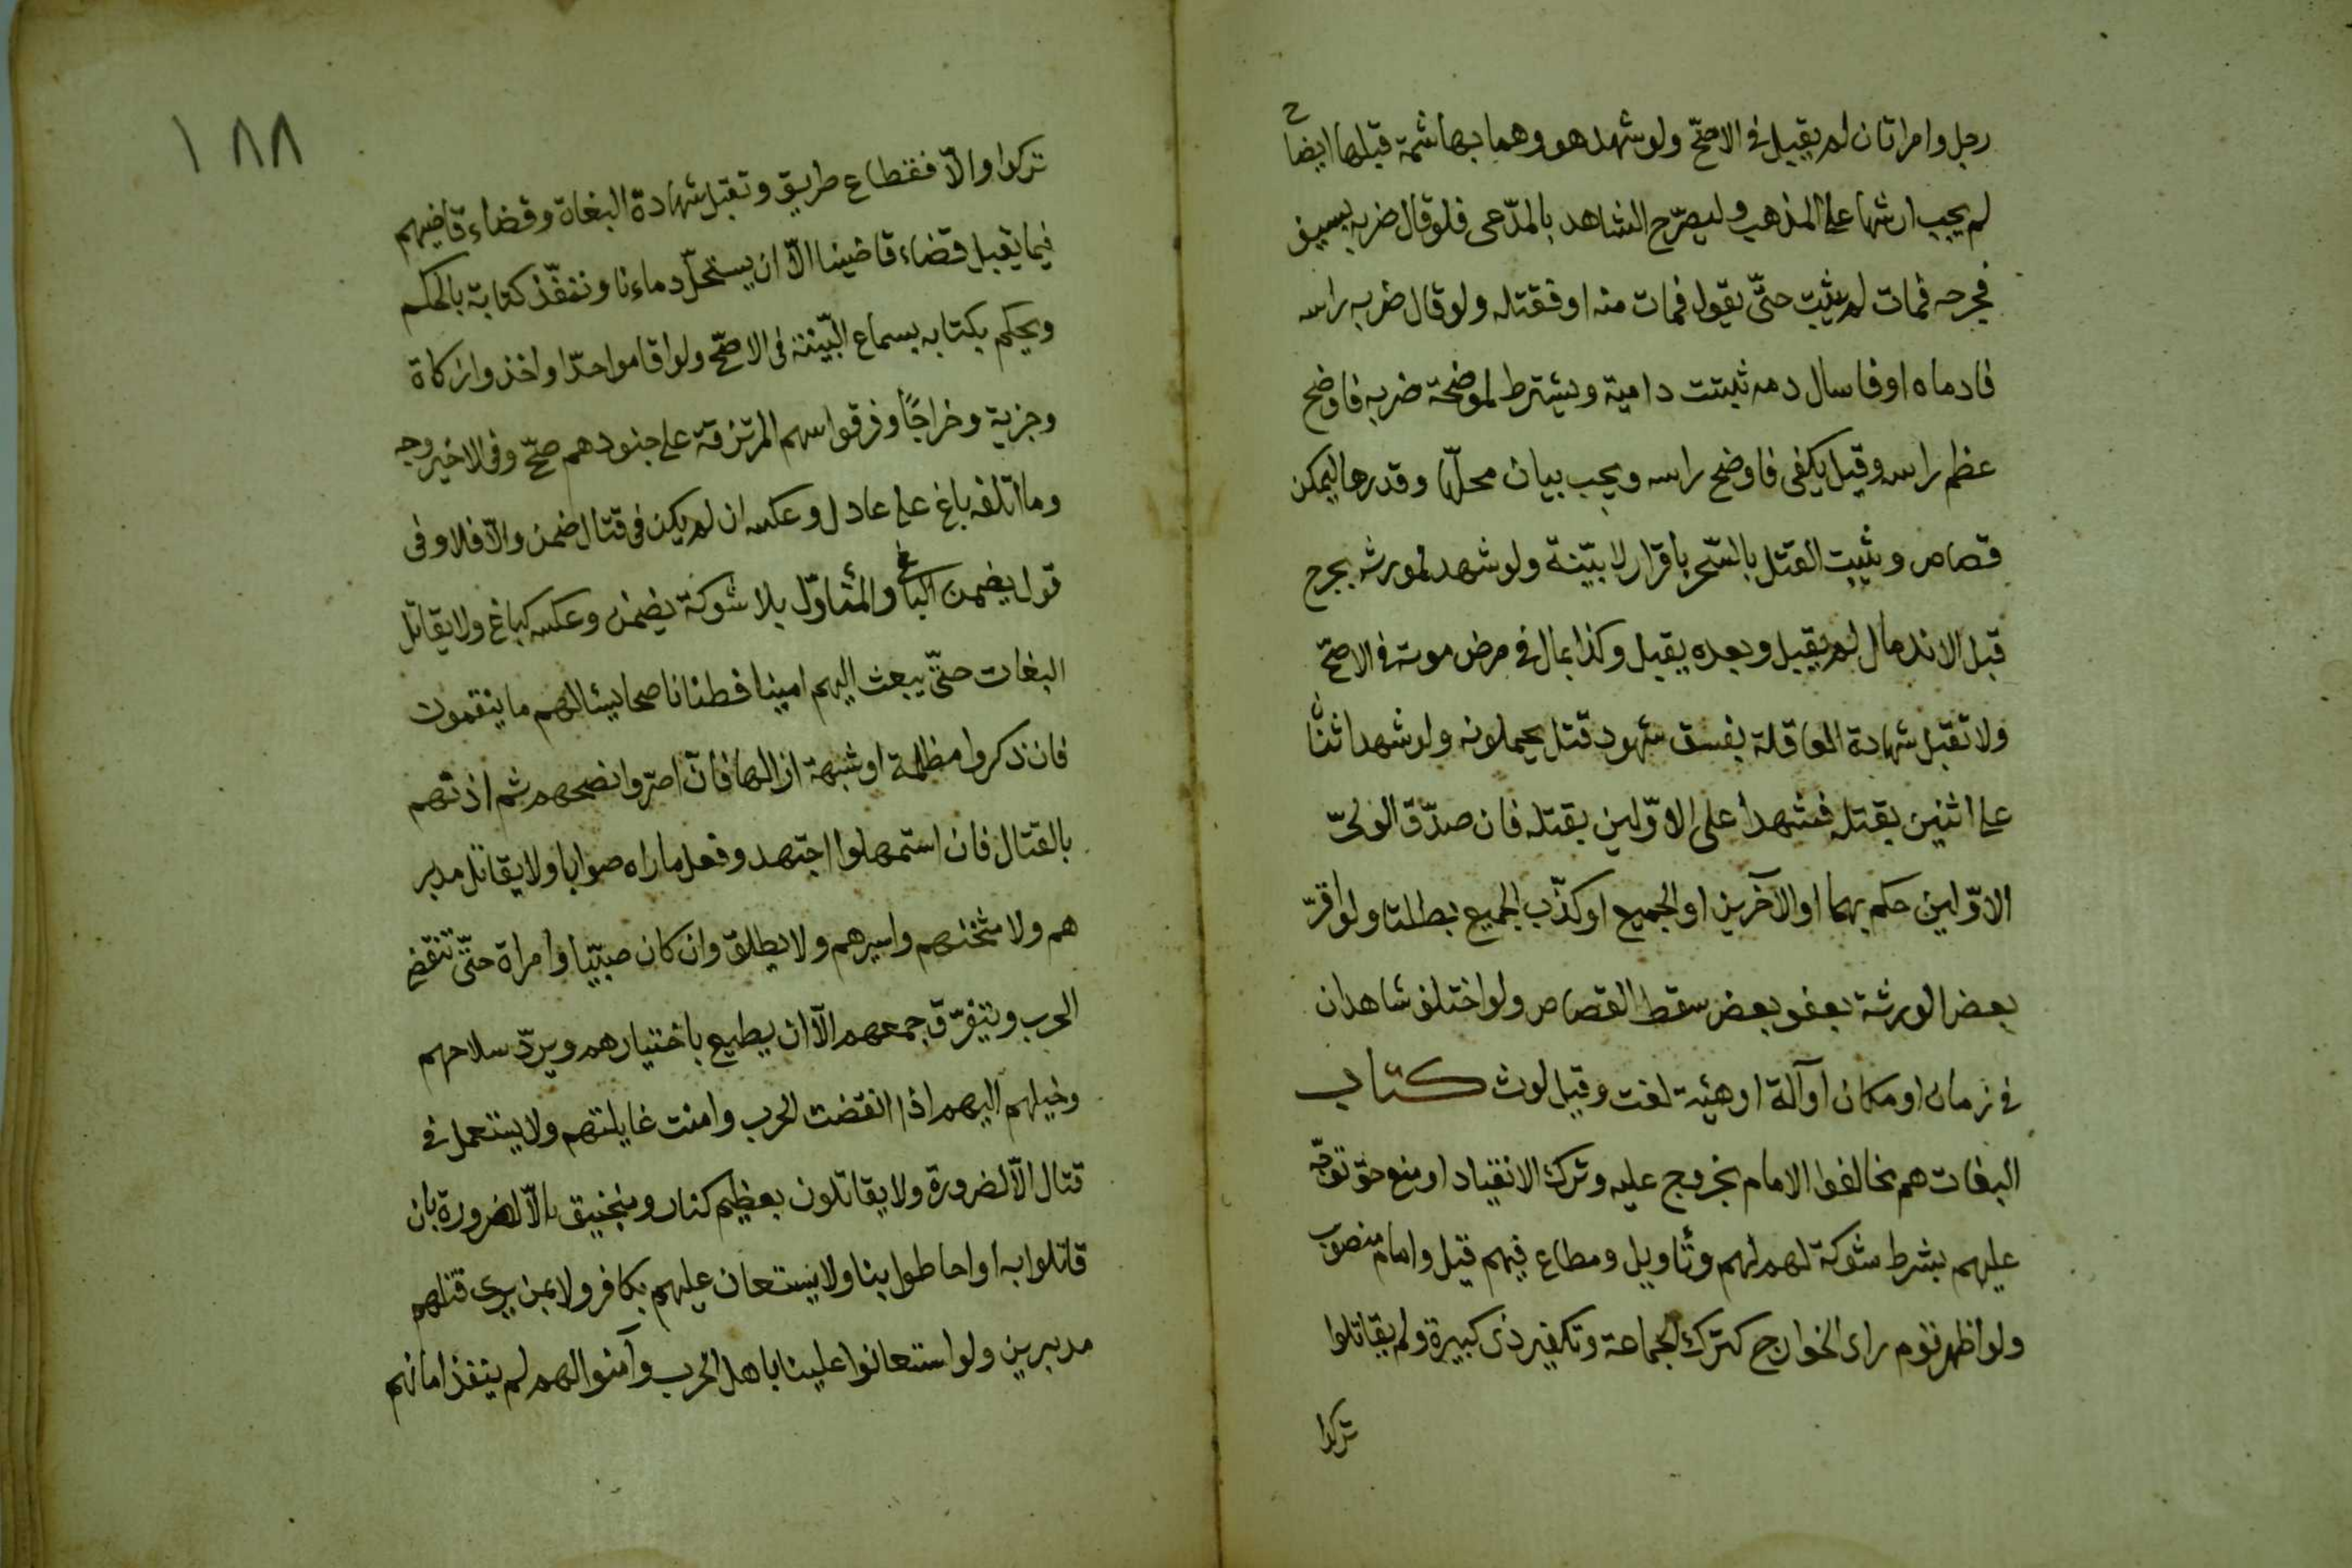 رجل وامراتان لم يقبل فى الاصحّ ولو شهد هو وهما بهاشمة قبلها ايضاح
لم يجب ارشها على المذهب وليصرّح الشاهد بالمدّعى فلو قال ضربه بسيف
فجرحه فمات لم يثبت حتّى يقول فمات منه او فقتله ولو قال ضرب راسه
فادماه او فاسال دمه ثبتت دامية ويشترط لموضحة ضربه فاوضح
عظم راسه وقيل يكفى فاوضح راسه ويجب بيان محلّها وقدرها ليمكن
قصاص ويثبت القتل بالسّحر باقرار لا ببّينة ولو شهد لمورثه بجرح
قبل الاندمال لم يقبل وبعده يقبل وكذا بمال فى مرض موته فى الاصحّ
ولا تقبل شهادة العاقلة بفسق شهود قتل يحملونه ولو شهد اثنان
على اثنين بقتله فشهدا على الاوّلين بقتله فان صدّق الولىّ
الاوّلين حكم بهما او الآخرين او الجميع او كذّب الجميع بطلتا ولو اقرّ
بعض الورثة بعفو بعض سقط القصاص ولو اختلف شاهدان
فى زمان او مكان او آلة او هيئة لغت وقيل لوث كتاب
البغات هم مخالفوا الامام بخروج عليه وترك الانقياد او منع حق توجّه
عليهم بشرط شوكة لهم لهم وتأويل ومطاع فيهم قيل وامام منصوب
ولو اظهر قوم راى الخوارج كترك الجماعة وتكفير ذى كبيرة ولم يقاتلوا
تركوا
١٨٨
تركوا والّا فقطاع طريق وتقبل شهادة البغاة وقضاء قاضيهم
فيما يقبل قضاء قاضينا الّا ان يستحلّ دماءنا وننفّذ كتابة بالحكم
ويحكم بكتابه بسماع البّينة فى الاصّح ولو اقاموا حدّا او اخذوا زكاة
وجزية وخراجًا وفرقوا سهم المرتزقة على جنودهم صحّ وفى الاخير وجه
وما اتلفه باغ على عادل وعكسه ان لم يكن فى قتال ضمن والّا فلا وفى
قول يضمن الباغ والمتأوّل بلا شوكة يضمن وعكسه كباغ ولا يقاتل
البغات حتّى يبعث اليهم امينا فطنا ناصحا يسئالهم ما ينقمون
فان ذكروا مظلمة او شبهة ازالها فان اصرّوا نصحهم ثم اذنهم
بالقتال فان استمهلوا اجتهد وفعل ماراه صوابا ولا يقاتل مدبر
هم ولا مثخنهم واسيرهم ولا يطلق وان كان صبيّا او امراة حتّى تنقض
الحرب ويتفرّق جمعهم الّا ان يطيع باختيارهم ويردّ سلاحهم
وخيلهم اليهم اذا انقضت الحرب وامنت غايلتهم ولا يستعمل فى
قتال الّا لضرورة ولا يقاتلون بعظيم كنار ومنجنيق الّا لضرورة بان
قاتلوا به او احاطوا بنا ولا يستعان عليهم بكافر ولا بمن يرى قتلهم
مدبرين ولو استعانوا علينا باهل الحرب وآمنوالهم لم ينفذ امانهم